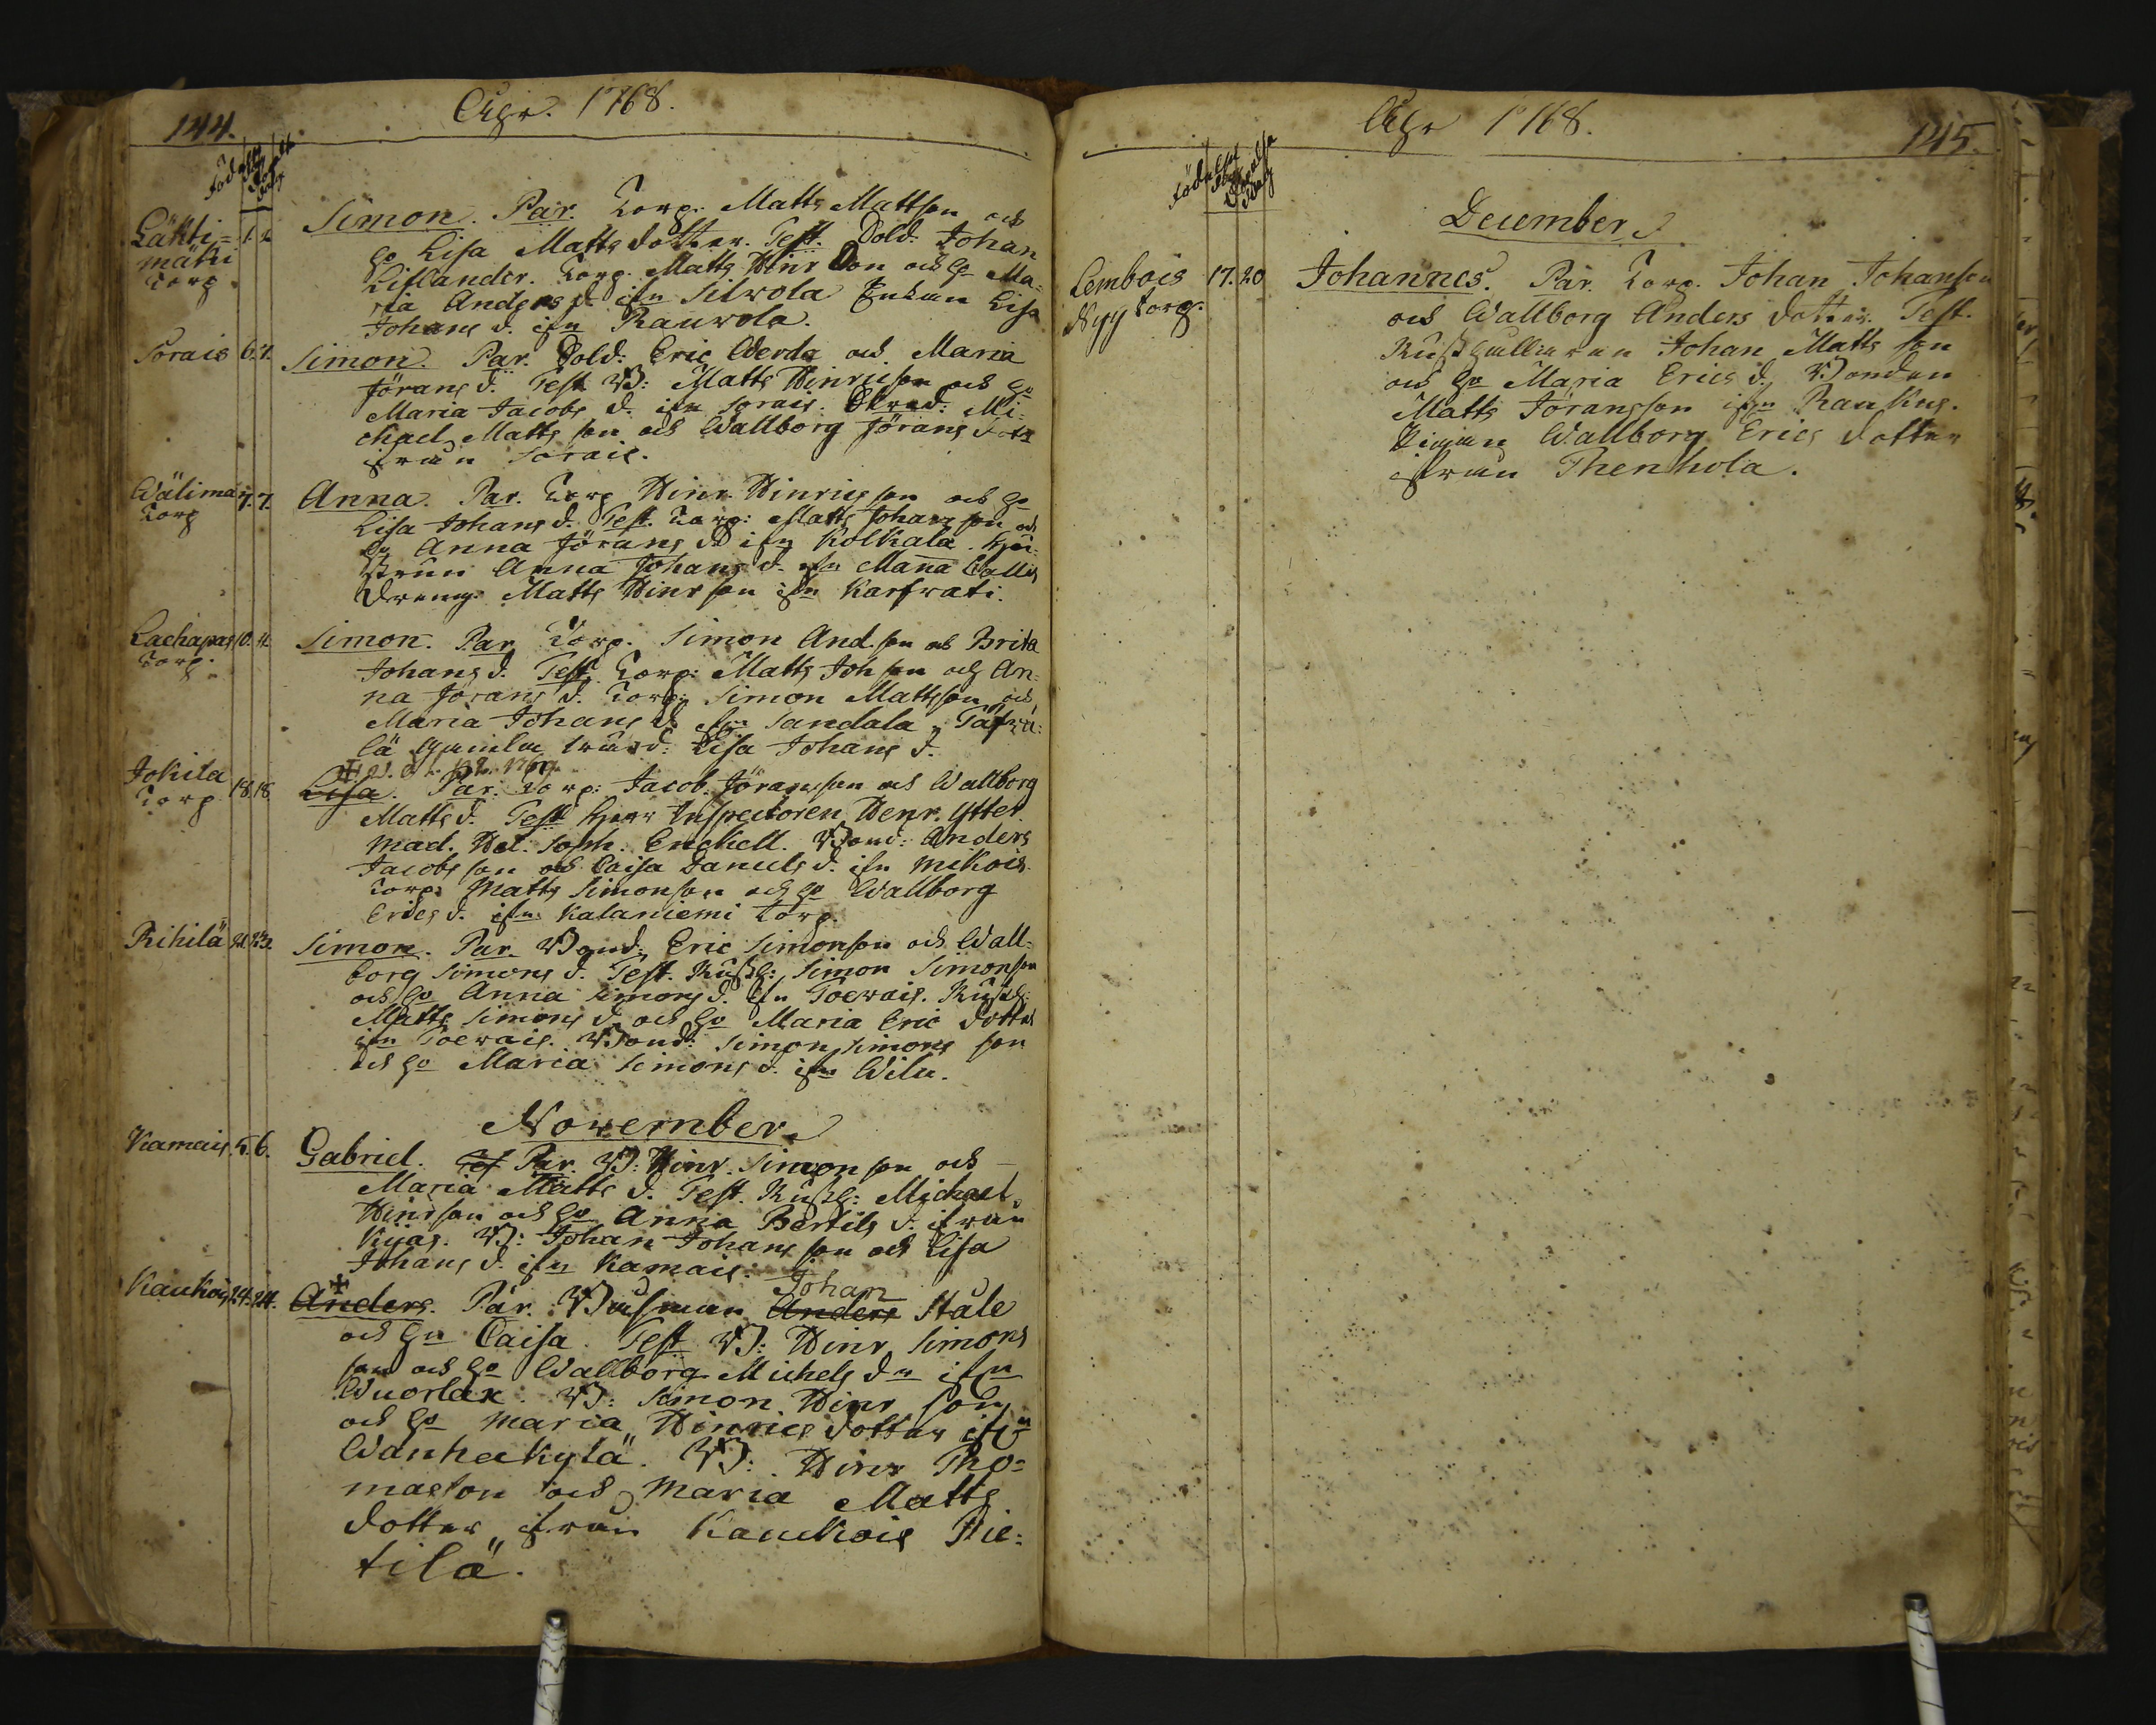 144.
Åhr. 1768.
Födelse dag
Läkti= 1. 2. Simon. Par. Torp. Matts Mattson och
mäki
Torp
ho Lisa Matts dotter. Test. Sold. Johan
Liflander. Torp. Matts Hinr Son och ho Ma=
ria Anders d. ifrn Silwola Enkan Lisa
Johans d. ifrn Rauwola.
Sorais 6. 7. Simon. Par. Sold: Eric Werda och Maria
Jörans d. Test B: Matts Hinricson och ho
Maria Jacobs d. ifrn Sorais. Mi=
chael Matts son och Wallborg Jörans dotr
ifrån Sorais.
Wälimä 7. 7. Anna. Par. Torp Hinr Hinrics son och ho
Torp
Lisa Johans d. Test. Torp: Matts Johans son och
ho Anna Jörans d. ifrn Kolkala.
Anna Johans d. ifrn Manna
Dreng: Matts Hinr son ifrn Karfwati.
10. 11. Simon. Par Torp. Simon And. son och Brita
Torp.
Johans d. Test. Torp: Matts Joh son och An=
na Jörans d. Torp: Simon Mattsson och
Maria Johans d. ifrn Sandala.
lä Lisa Johans d.
Jokila 18. 18. Lisa. Par. Torp: Jacob Jöransson och Wallborg
Torp
Matts d. Test Herr Inspectoren Henr. Ytter
Mad. Hel. Soph. Enckell. Bond: Anders
Jacobs son och Caisa Daniels d. ifrn Mikois
Torp: Matts Simonson och ho Wallborg
Erics d. ifrn Kalaniemi Torp.
Rihilä Simon. Par. Bond: Eric Simonson och Wall=
borg Simons d. Test. Rusth: Simon Simonson
och ho Anna Simons d. ifrn Toewais. Rusth:
Matts Simons d och ho Maria Eric dotter
ifrn Toewais. Bond: Simon Simons son
och ho Maria Simons d. ifrn Wilu.
November
Kamais 5. 6. Gabriel. Par. B: Hinr. Simonson och
Maria Matts d. Test. Rusth: Michael
Hinrson och ho Anna Bertils d. ifrån
Kijas. B: Johan Johans son och Lisa
Johans d. ifrn Kamais.
Johan
Kaukois 24. 24. Anders. Par. Båtsman Anders Ståle
och hn Caisa. Test B: Hinr Simons
son och ho Wallborg Michels dn ifrn
Wuorlax. B: Simon Hinr son
och ho Maria Hinrics dotter ifrn
Wanhakylä. B: Hinr Tho=
masson och Maria Matts
dotter ifrån Kauckois Pie=
tilä.
Åhr 1768.
145.
Födelse
December
Lembois 17. 20 Johannes. Par. Torp. Johan Johanson
Nyy Torp.
och Wallborg Anders dotter. Test.
Rusthållaren Johan Matts son
och ho Maria Erics d. Bonden
Matts Jöransson ifrn Raukus.
Pigan Wallborg Erics dotter
ifrån Thenhola.